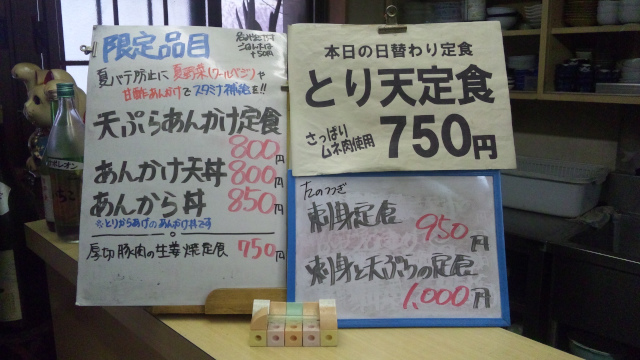 限定品目
+50円
夏バテ防止に夏野菜(クールベジ)や
甘酢あんかけでスタミナ補給を!!
天ぷらあんかけ定食
800円
あんかけ天丼 800円
あんから丼 850円
※とりからあげのあんかけ丼です
厚切豚肉の生姜焼定食 750円
本日の日替わり定食
とり天定食
さっぱり
ムネ肉使用 750円
刺身定食 950円
刺身と天ぷらの定食
1,000円